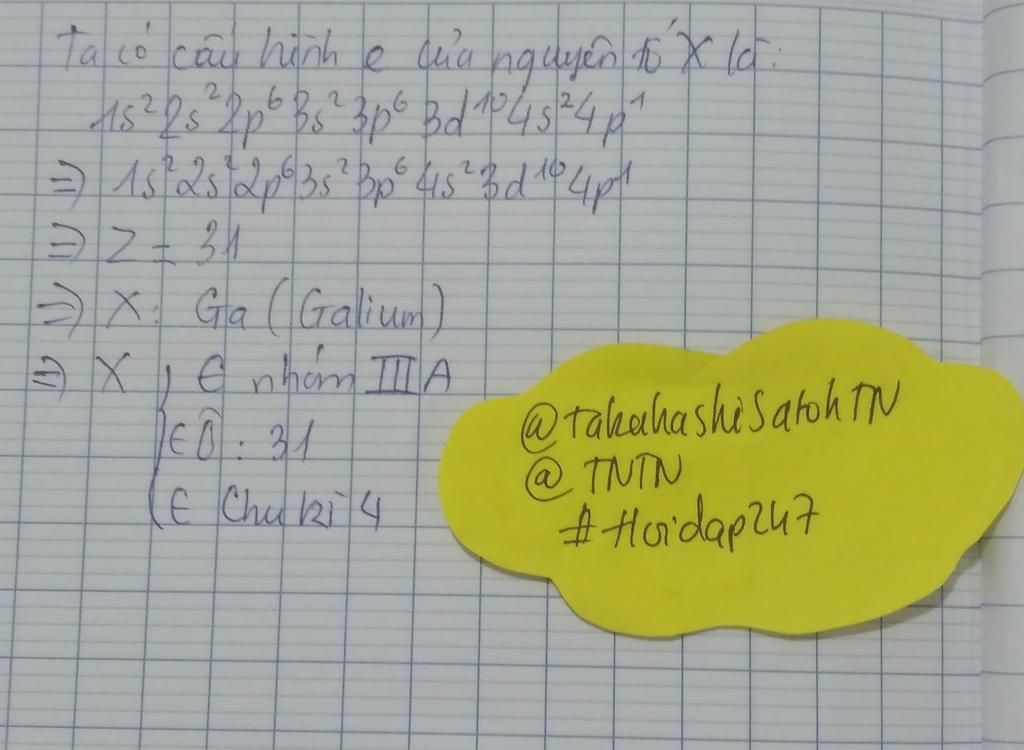 Ta có cấu hình e của nguyên tố X là:
1s²2s²2p⁶3s²3p⁶3d¹⁰4s²4p¹
⇒ 1s²2s²2p⁶3s²3p⁶4s²3d¹⁰4p¹
⇒ Z = 31
⇒ X: Ga (Galium)
⇒ X { ∈ nhóm IIIA
∈ Ô : 31
∈ Chu kì 4
@TakahashiSatohTN
@TNTN
#Hoidap247